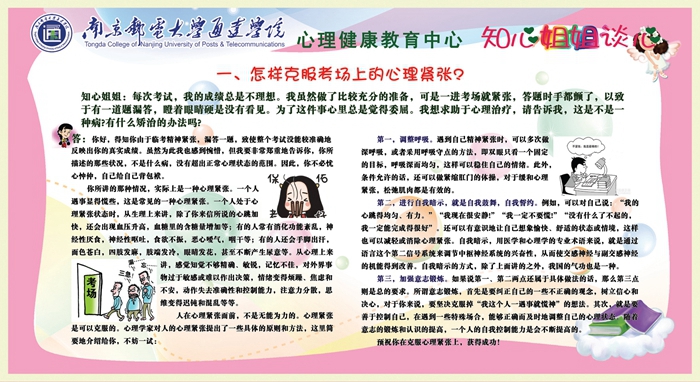 南京邮电大学通达学院
Tongda College of Nanjing University of Posts & Telecommunications
心理健康教育中心
知心姐姐谈心
一、怎样克服考场上的心理紧张？
知心姐姐：每次考试，我的成绩总是不理想。我虽然做了比较充分的准备，可是一进考场就紧张，答题时手都颤了，以致
于有一道题漏答，瞪着眼睛硬是没有看见。为了这件事心里总是觉得委屈。我想求助于心理治疗，请告诉我，这是不是一
种病?有什么矫治的办法吗?
答：你好，得知你由于临考精神紧张，漏答一题，致使整个考试没能较准确地
反映出你的真实成绩，虽然为此我也感到惋惜，但我要非常郑重地告诉你，你所
描述的那些状况，不是什么病，没有超出正常心理状态的范围。因此，你不必忧
心忡忡，自己给自己背包袱。
你所讲的那种情况，实际上是一种心理紧张。一个人
遇事显得慌些，这是常见的一种心理紧张。一个人处于心
理紧张状态时，从生理上来讲，除了你来信所说的心跳加
快，还会出现血压升高，血糖里的含糖量增加等；有的人常有消化功能紊乱，神
经性厌食，神经性呕吐，食欲不振，恶心嗳气，咽干等；有的人还会手脚出汗，
面色苍白，四肢发麻，肢端发冷，眼睛发花，甚至不断产生尿意等。从心理上来
讲，感觉知觉不够精确、敏锐，记忆不佳，对外界事
物过于敏感或难以作出决策，情绪变得烦躁、焦虑和
不安，动作失去准确性和控制能力，注意力分散，思
维变得迟钝和混乱等等。
人在心理紧张面前，不是无能为力的。心理紧张
是可以克服的。心理学家对人的心理紧张提出了一些具体的原则和方法，这里简
要地介绍给你，不妨一试：
考场
第一，调整呼吸。遇到自己精神紧张时，可以多次做
深呼吸，或者采用呼吸守点的方法，即双眼只看一个固定
的目标，呼吸深而均匀，这样可以稳住自己的情绪。此外，
条件允许的话，还可以做紧缩肛门的体操，对于缓和心理
紧张，松弛肌肉都是有效的。
第二，进行自我暗示，就是自我鼓舞，自我誓约。例如，可以对自己说：“我的
心跳得均匀、有力。”“我现在很安静!”“我一定不要慌!”“没有什么了不起的，
我一定能完成得很好”。还可以有意识地让自己想象愉快、舒适的状态或情境，这样
也可以减轻或消除心理紧张。自我暗示，用医学和心理学的专业术语来说，就是通过
语言这个第二信号系统来调节中枢神经系统的兴奋性，从而使交感神经与副交感神经
的机能得到改善。自我暗示的方式，除了上面讲的之外，我国的气功也是一种。
第三，加强意志锻炼。如果说第一、第二两点还属于具体做法的话，那么第三点
则是总的要求，所谓意志锻炼，首先是要纠正自己的一些不正确的观念，树立信心和
决心，对于你来说，要坚决克服掉“我这个人一遇事就慌神”的想法。其次，就是要
善于控制自己，在遇到一些特殊场合，能够正确而及时地调整自己的心理状态，随着
意志的锻炼和认识的提高，一个人的自我控制能力是会不断提高的。
预祝你在克服心理紧张上，获得成功!